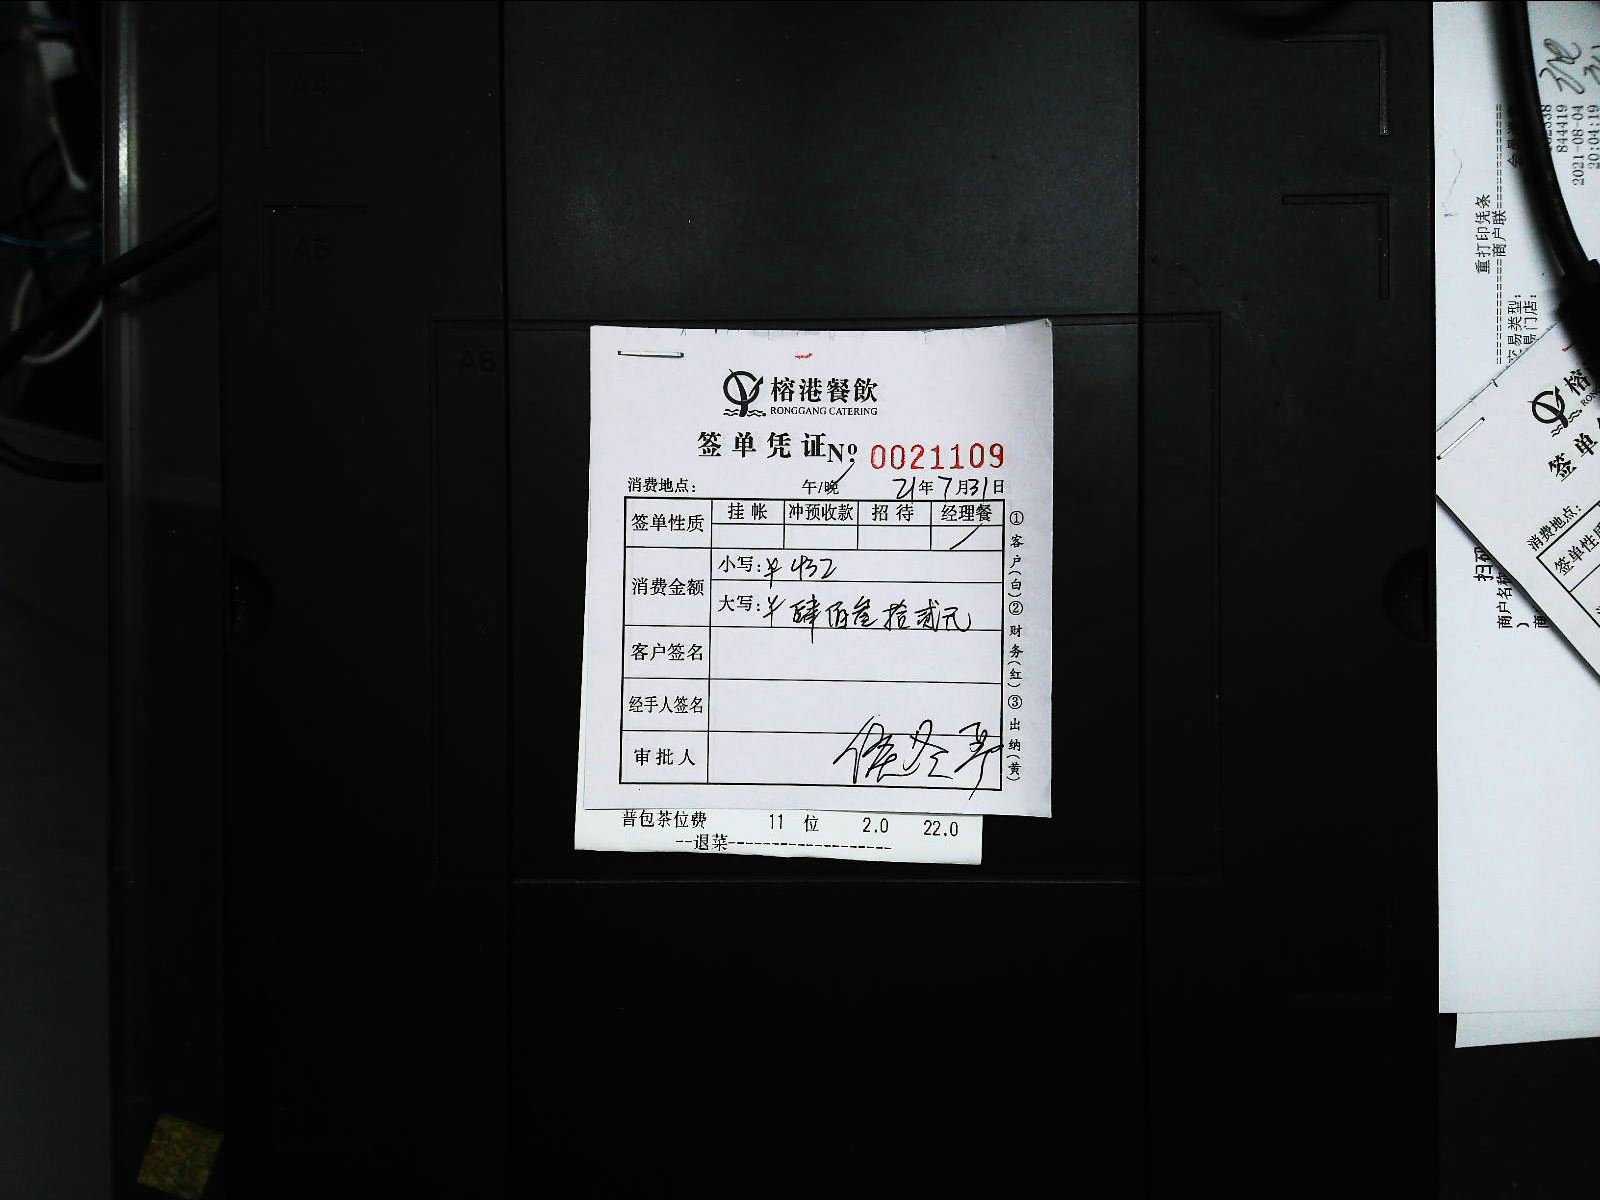 A4
A5
A6
榕港餐飲
RONGGANG CATERING
签单凭证 Nº 0021109
消费地点: 午/晚 21年7月31日
签单性质 挂帐 冲预收款 招待 经理餐
消费金额 小写:¥432
大写:¥肆佰叁拾贰元
客户签名
经手人签名
审批人
①客户(白)②财务(红)③出纳(黄)
普包茶位费 11 位 2.0 22.0
--退菜-------------------
844419
2021-08-04
20:04:19
重打印凭条
商户联
交易类型:
易门店:
商户名称
榕
签单
消费地点:
签单性质